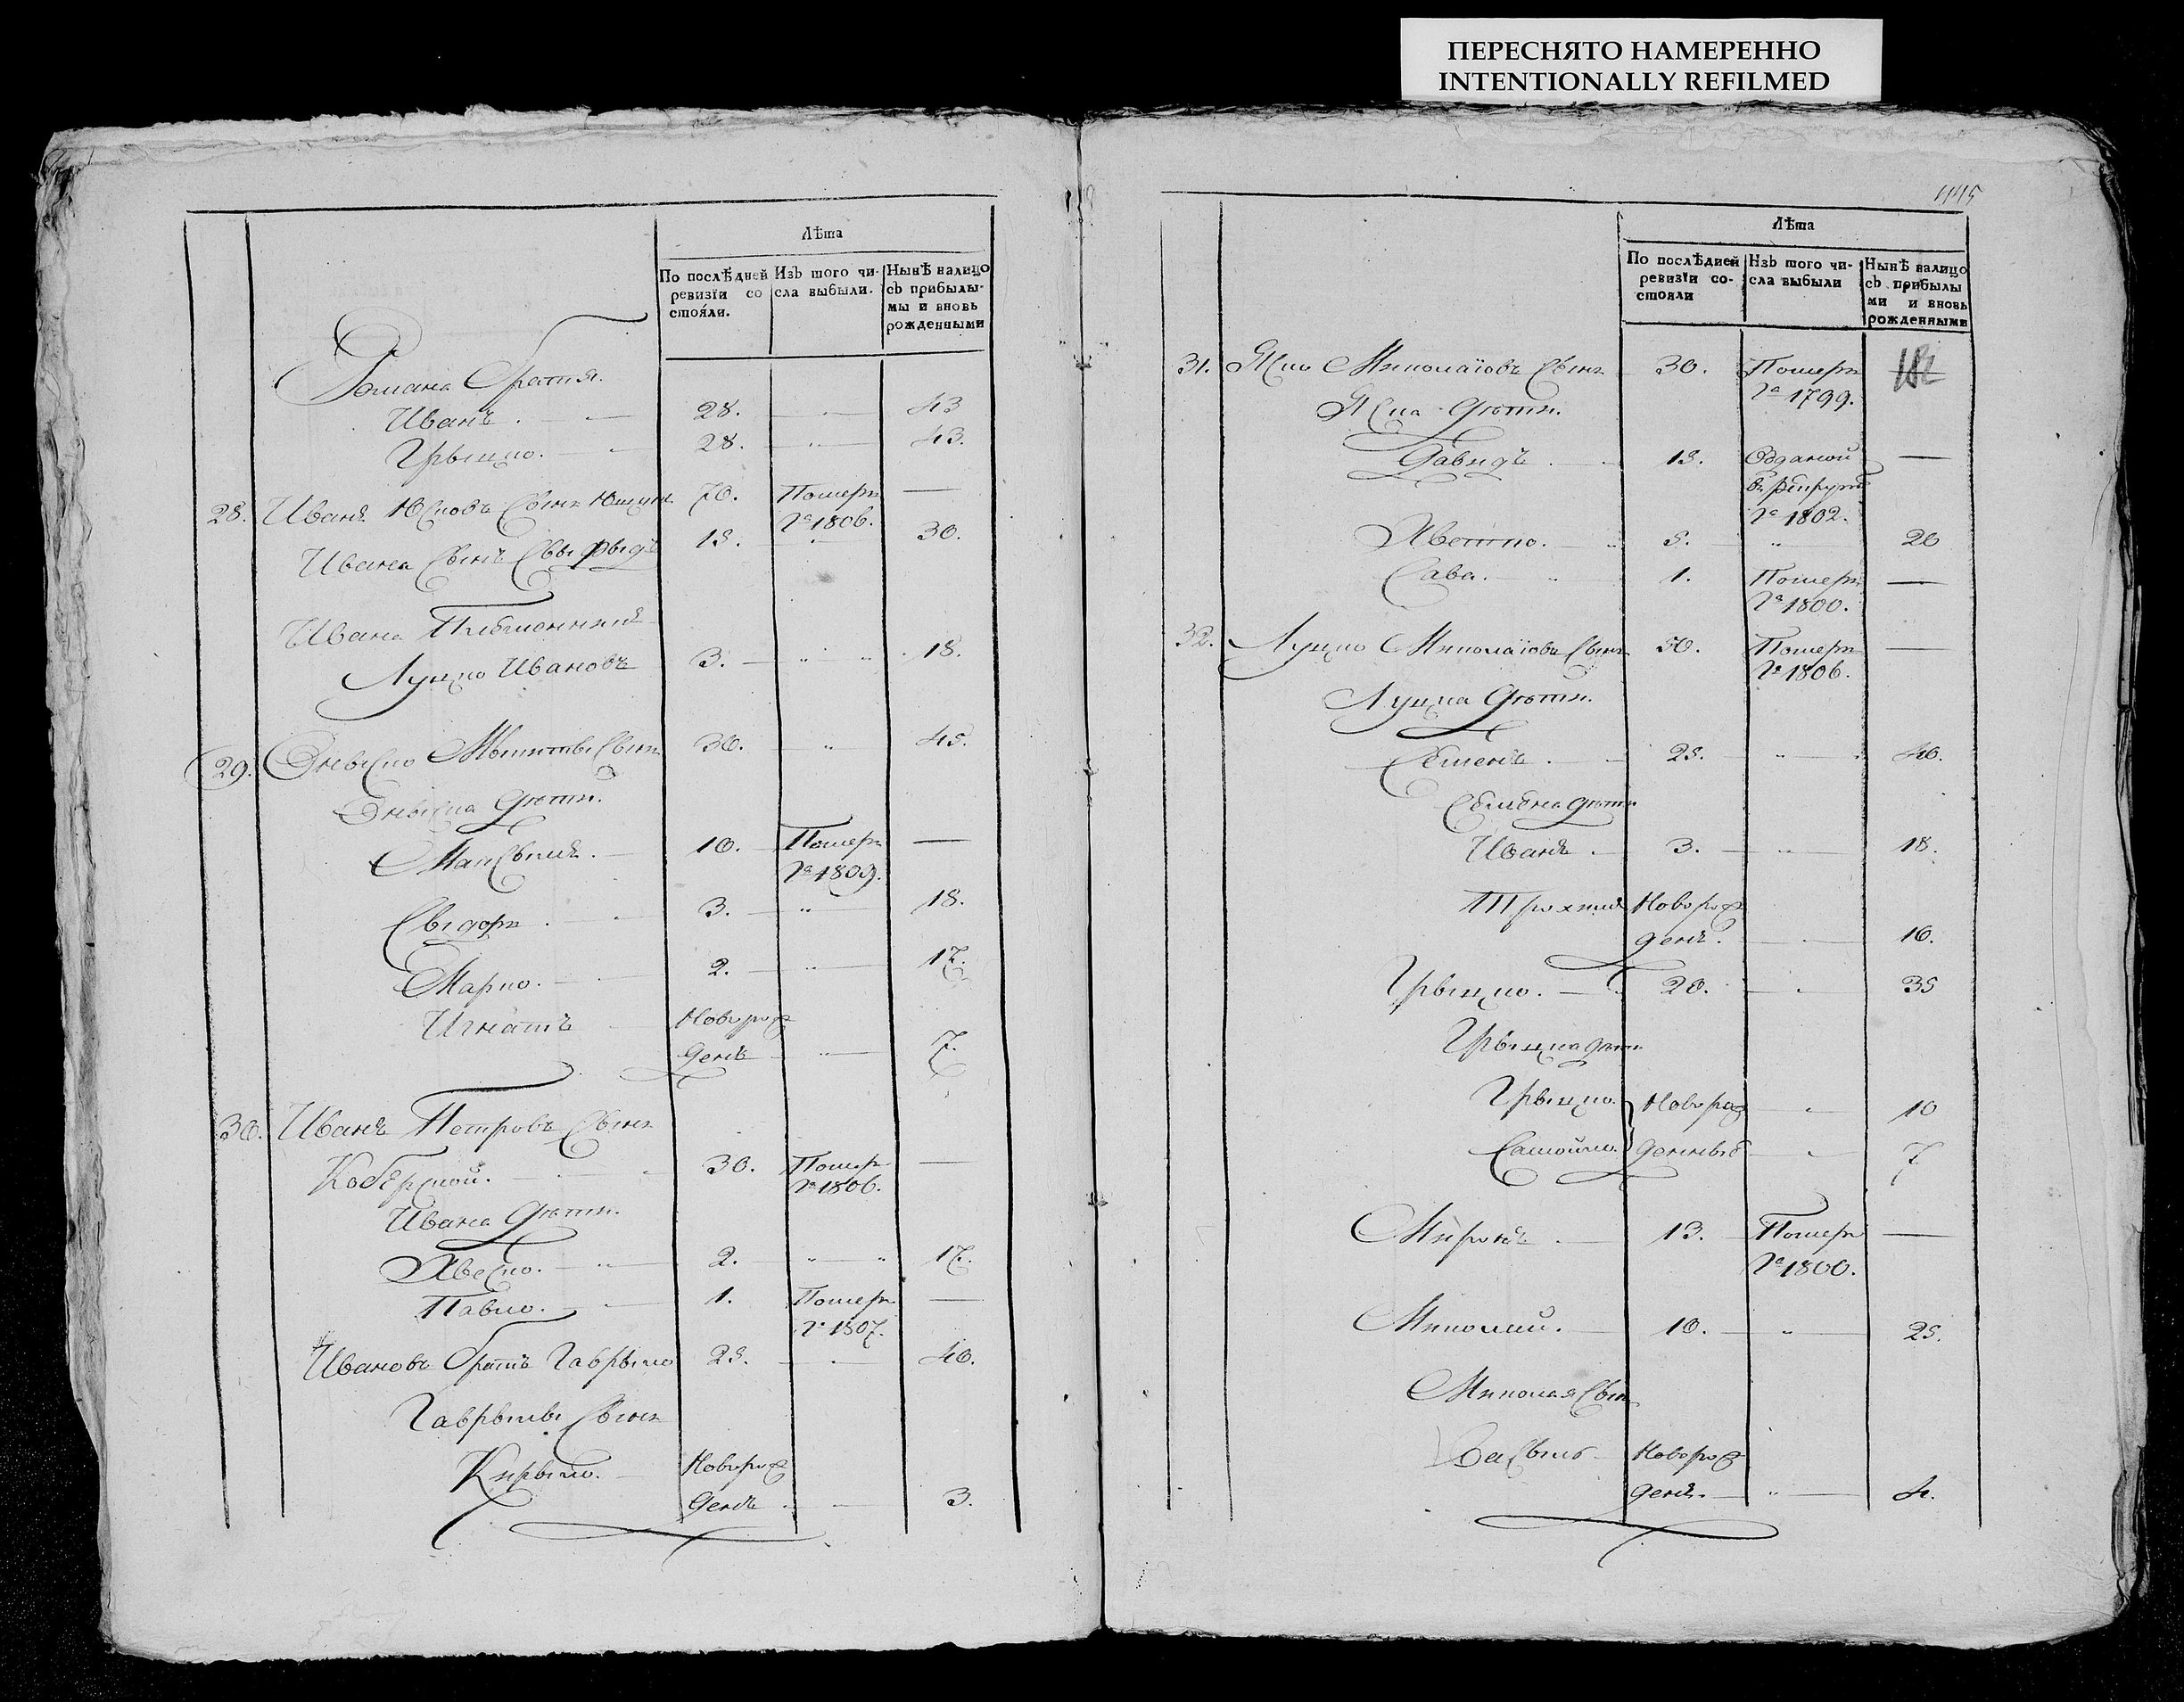 ПЕРЕСНЯТО НАМЕРЕННО
INTENTIONALLY REFILMED
Лѣта
По послѣдней ревизіи состояли.
Изъ того числа выбыли.
Нынѣ налицо съ прибылыми и вновь рожденными
Романа братья.
Иванъ. 28. 43
Грыцко. 28. 43.
28. Иванъ Юсковъ Сынъ 70. Померъ —
1806.
Ивана Сынъ 15. 30.
Ивана Племенникъ
Луцко Ивановъ 3. 18.
29. Сынъ 30. 45.
дѣти.
10. Померъ —
1809.
Сыдоръ. 3. 18.
Марко. 2. 17.
Игнатъ Новорож
денъ 7.
30. Иванъ Петровъ Сынъ
30. Померъ —
1806.
Ивана дѣти.
2. 17.
Павло. 1. Померъ —
1807.
Ивановъ братъ Гаврыло 25. 40.
Гаврылы Сынъ
Кирыло. Новорож
денъ 3.
445
Лѣта
По послѣдней ревизіи состояли
Изъ того числа выбыли
Нынѣ налицо съ прибылыми и вновь рожденными
31. Миколаіовъ Сынъ 30. Померъ
1799.
дѣти.
Давидъ 15. Отданой
въ рекруты
1802.
5. 20
Сава. 1. Померъ —
1800.
32. Луцко Миколаіовъ Сынъ 50. Померъ —
1806.
Луцка дѣти.
Семенъ 25. 40.
Семена дѣти
Иванъ 3. 18.
Трохимъ Новорож
денъ. 10.
Грыцко. 20. 35
Грыцка дѣти
Грыцко. Новорож 10
Самойло. денные 7
Миронъ 13. Померъ —
1800.
Миколай. 10. 25.
Миколая Сынъ
Василь Новорож
денъ. 4.